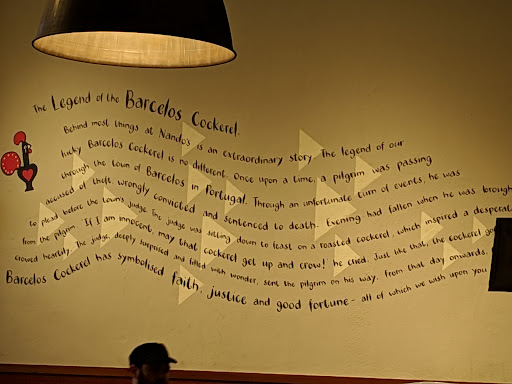 The Legend of the Barcelos Cockerel.
Behind most things at Nandos is an extraordinary story. The legend of our
lucky Barcelos Cockerel is no different. Once upon a time, a pilgrim was passing
through the town of Barcelos in Portugal. Through an unfortunate turn of events, he was
accused of theft, wrongly convicted and sentenced to death. Evening had fallen when he was brough
to plead before the town's judge. The judge was sitting down to feast on a roasted cockerel, which inspired a desperat
from the pilgrim. If I am innocent, may that cockerel get up and crow! he cried. Just like that, the cockerel go
crowed heartily. The judge, deeply surprised and filled with wonder, sent the pilgrim on his way. From that day onwards,
Barcelos Cockerel has symbolised faith, justice and good fortune - all of which we wish upon you